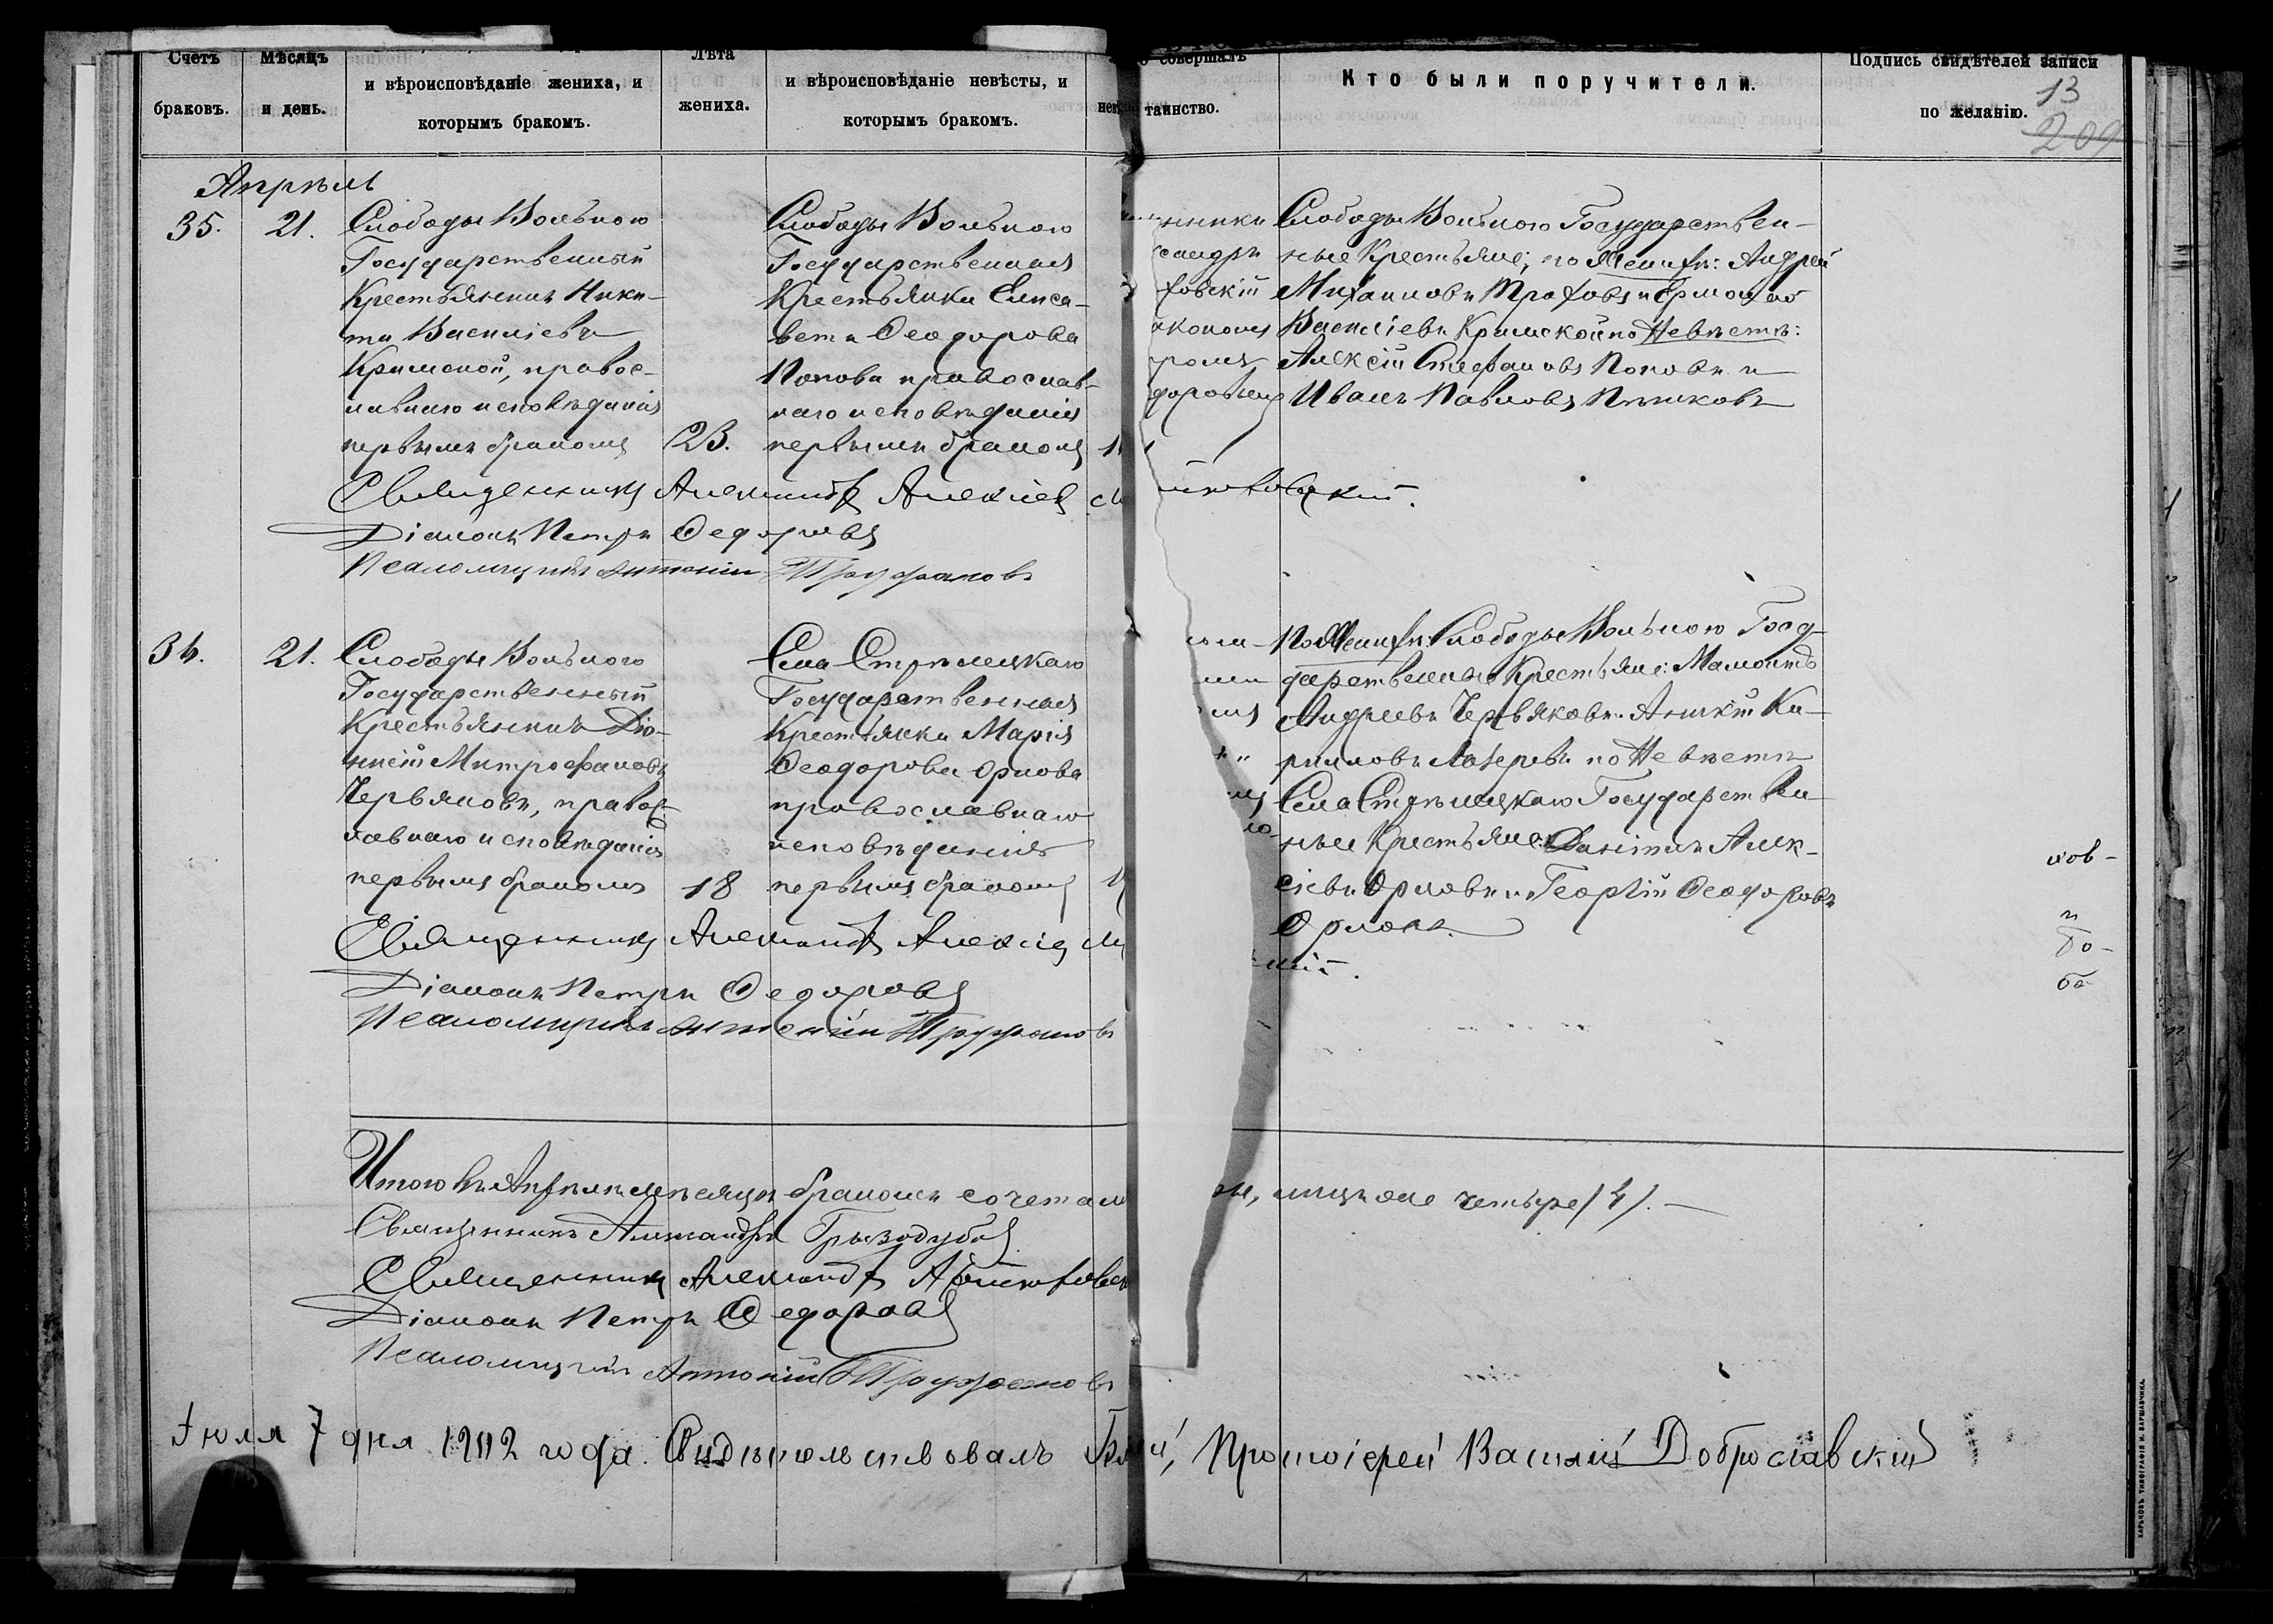 Счетъ
браковъ.
Мѣсяцъ
и день.
и вѣроисповѣданіе жениха, и
которымъ бракомъ.
Лѣта
жениха.
и вѣроисповѣданіе невѣсты, и
которымъ бракомъ.
совершалъ
таинство.
Кто были поручители.
Подпись свидѣтелей записи
по желанію.
13
209
Апрѣль
35.
21.
Слободы Вольного
Государственный
Крестьянинъ Ники-
та Васильевъ
Кримской, правос-
лавнаго исповѣданія
первымъ бракомъ
23.
Слободы Вольного
Государственная
Крестьянка Елиса-
вета Ѳеодорова
Попова православ-
наго исповѣданія
первымъ бракомъ
Слободы Вольного Государствен-
ные Крестьяне; по Женихѣ: Андрей
Михаиловъ
Васильевъ Кримской по Невѣстѣ:
Алексій Стефановъ Поповъ и
Иванъ Павловъ
Священникъ Александръ
Діаконъ Петръ Ѳедоровъ
Псаломщикъ Антоній Труфановъ
36.
21.
Слободы Вольного
Государственный
Крестьянинъ Діо-
нисій Митрофановъ
Червяковъ, правос-
лавнаго исповѣданія
первымъ бракомъ
18
Села Стрѣлецкаго
Государственная
Крестьянка Марія
Ѳеодорова Орлова
православнаго
исповѣданія
первымъ бракомъ
По Женихѣ: Слободы Вольного Госу-
дарственные Крестьяне: Мамонтъ
Андреевъ Червяковъ и Ки-
рилловъ по Невѣстѣ
Села Стрѣлецкаго Государствен-
ные Крестьяне: Алек-
сіевъ Орловъ и Георгій Ѳеодоровъ
Орловъ.
Священникъ Александръ
Діаконъ Петръ Ѳедоровъ
Псаломщикъ Антоній Труфановъ
Итого въ Апрѣлѣ мѣсяцѣ бракомъ сочетал
четыре /4/.
Священникъ Александръ Грызодубовъ
Священникъ Александръ
Діаконъ Петръ Ѳедоровъ
Псаломщикъ Антоній Труфановъ
Іюля 7 дня 1902 года. Свидѣтельствовалъ Протоіерей Василій Доброславскій